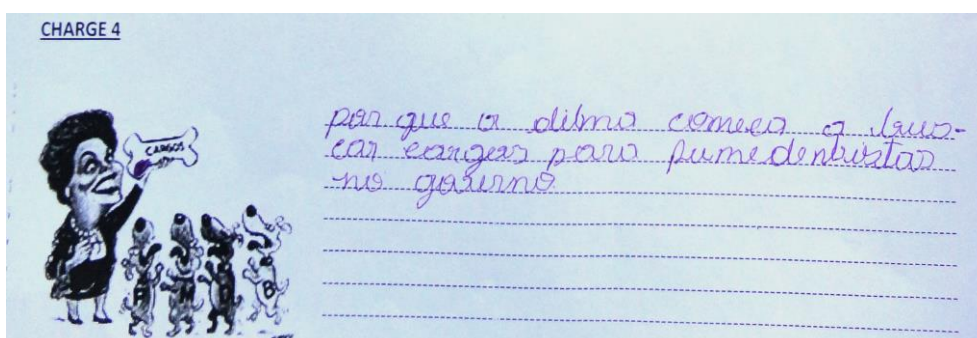 CHARGE 4
CARGOS
P M B
por que a dilma comeca a bus-
car cargos para pumedenbistas
no governo